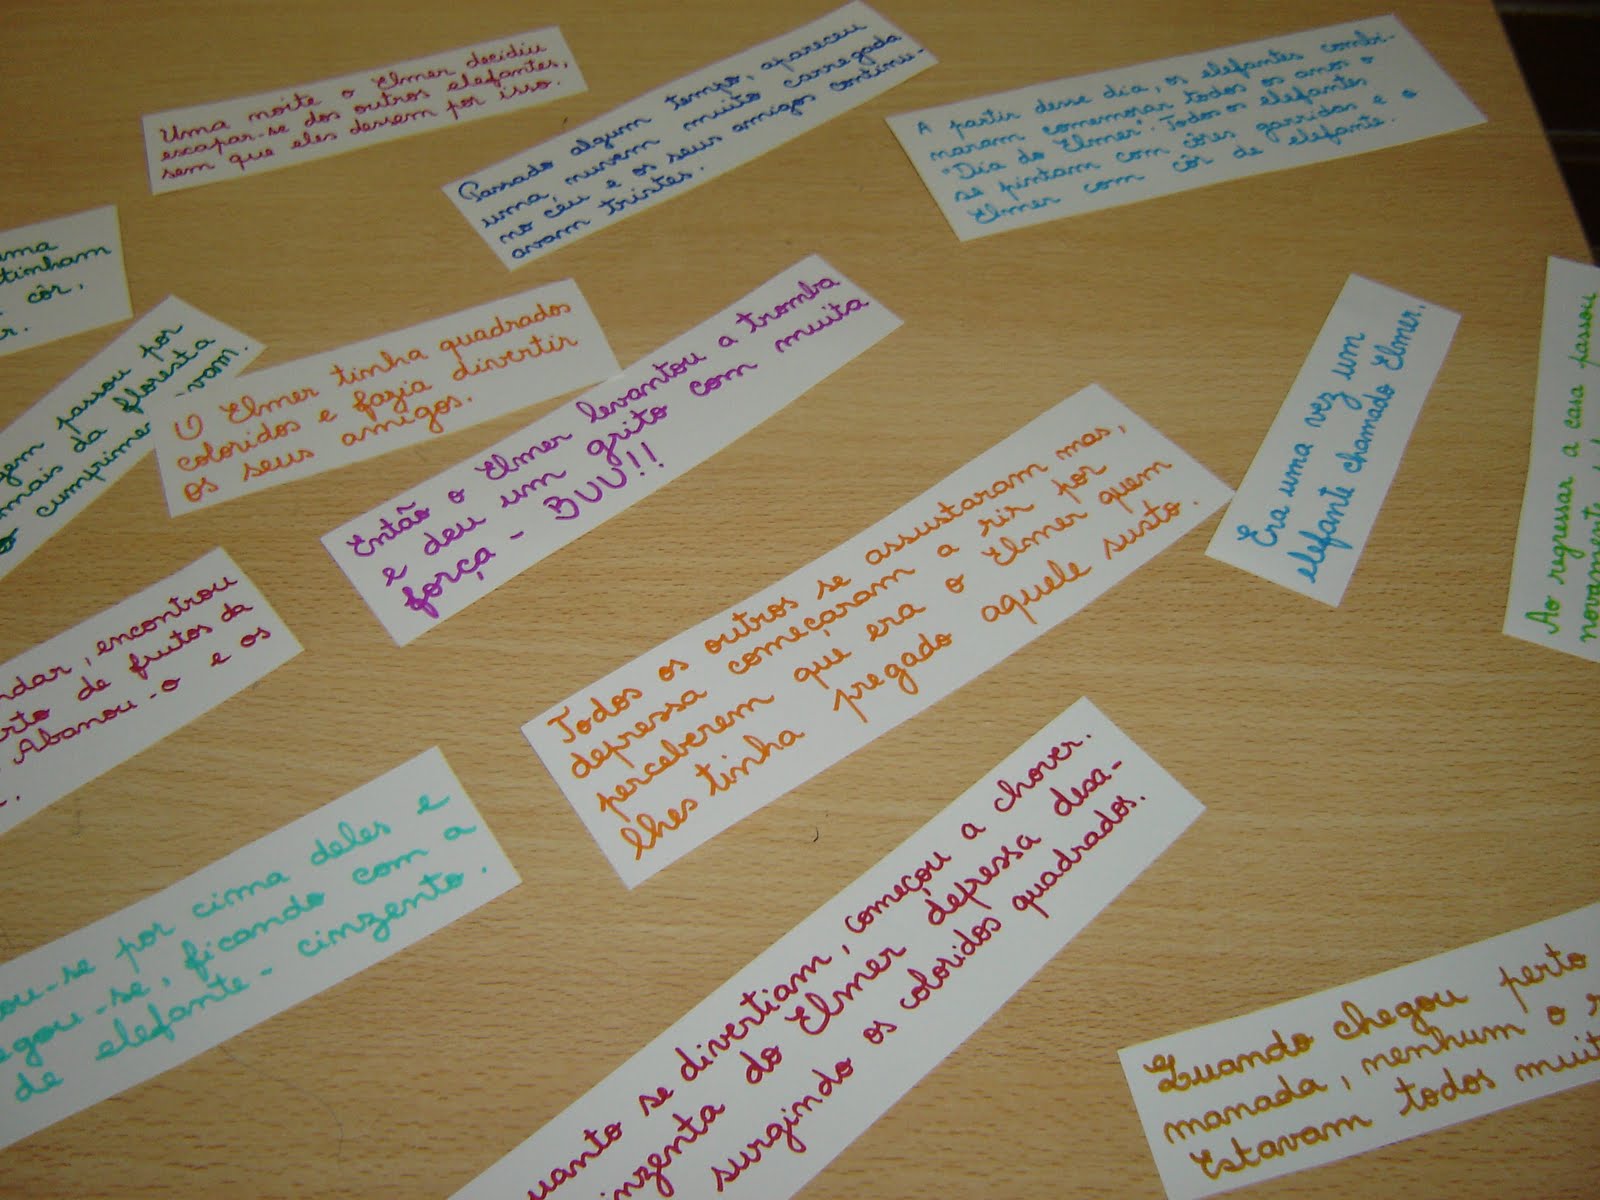 Uma noite o Elmer decidiu
escapar-se dos outros elefantes,
sem que eles dessem por isso.
Passado algum tempo, apareceu
uma nuvem muito carregada
no céu e os seus amigos continu-
avam tristes.
A partir desse dia, os elefantes combi-
naram comemorar todos os anos o
"Dia do Elmer". Todos os elefantes
se pintam com côres garridas e o
Elmer com côr de elefante.
uma
tinham
côr,
passou por
mais da floresta
cumprime -vam.
O Elmer tinha quadrados
coloridos e fazia divertir
os seus amigos.
Então o Elmer levantou a tromba
e deu um grito com muita
força - BUU!!
Era uma vez um
elefante chamado Elmer.
Ao regressar a casa passou
novamente
ndar, encontrou
rto de frutos da
Abanou-o e os
Todos os outros se assustaram mas,
depressa começaram a rir por
perceberem que era o Elmer quem
lhes tinha pregado aquele susto.
ou-se por cima deles e
egou-se, ficando com a
de elefante - cinzento.
uanto se divertiam, começou a chover.
inzenta do Elmer depressa desa-
surgindo os coloridos quadrados.
Quando chegou perto
manada, nenhum o r
Estavam todos muit